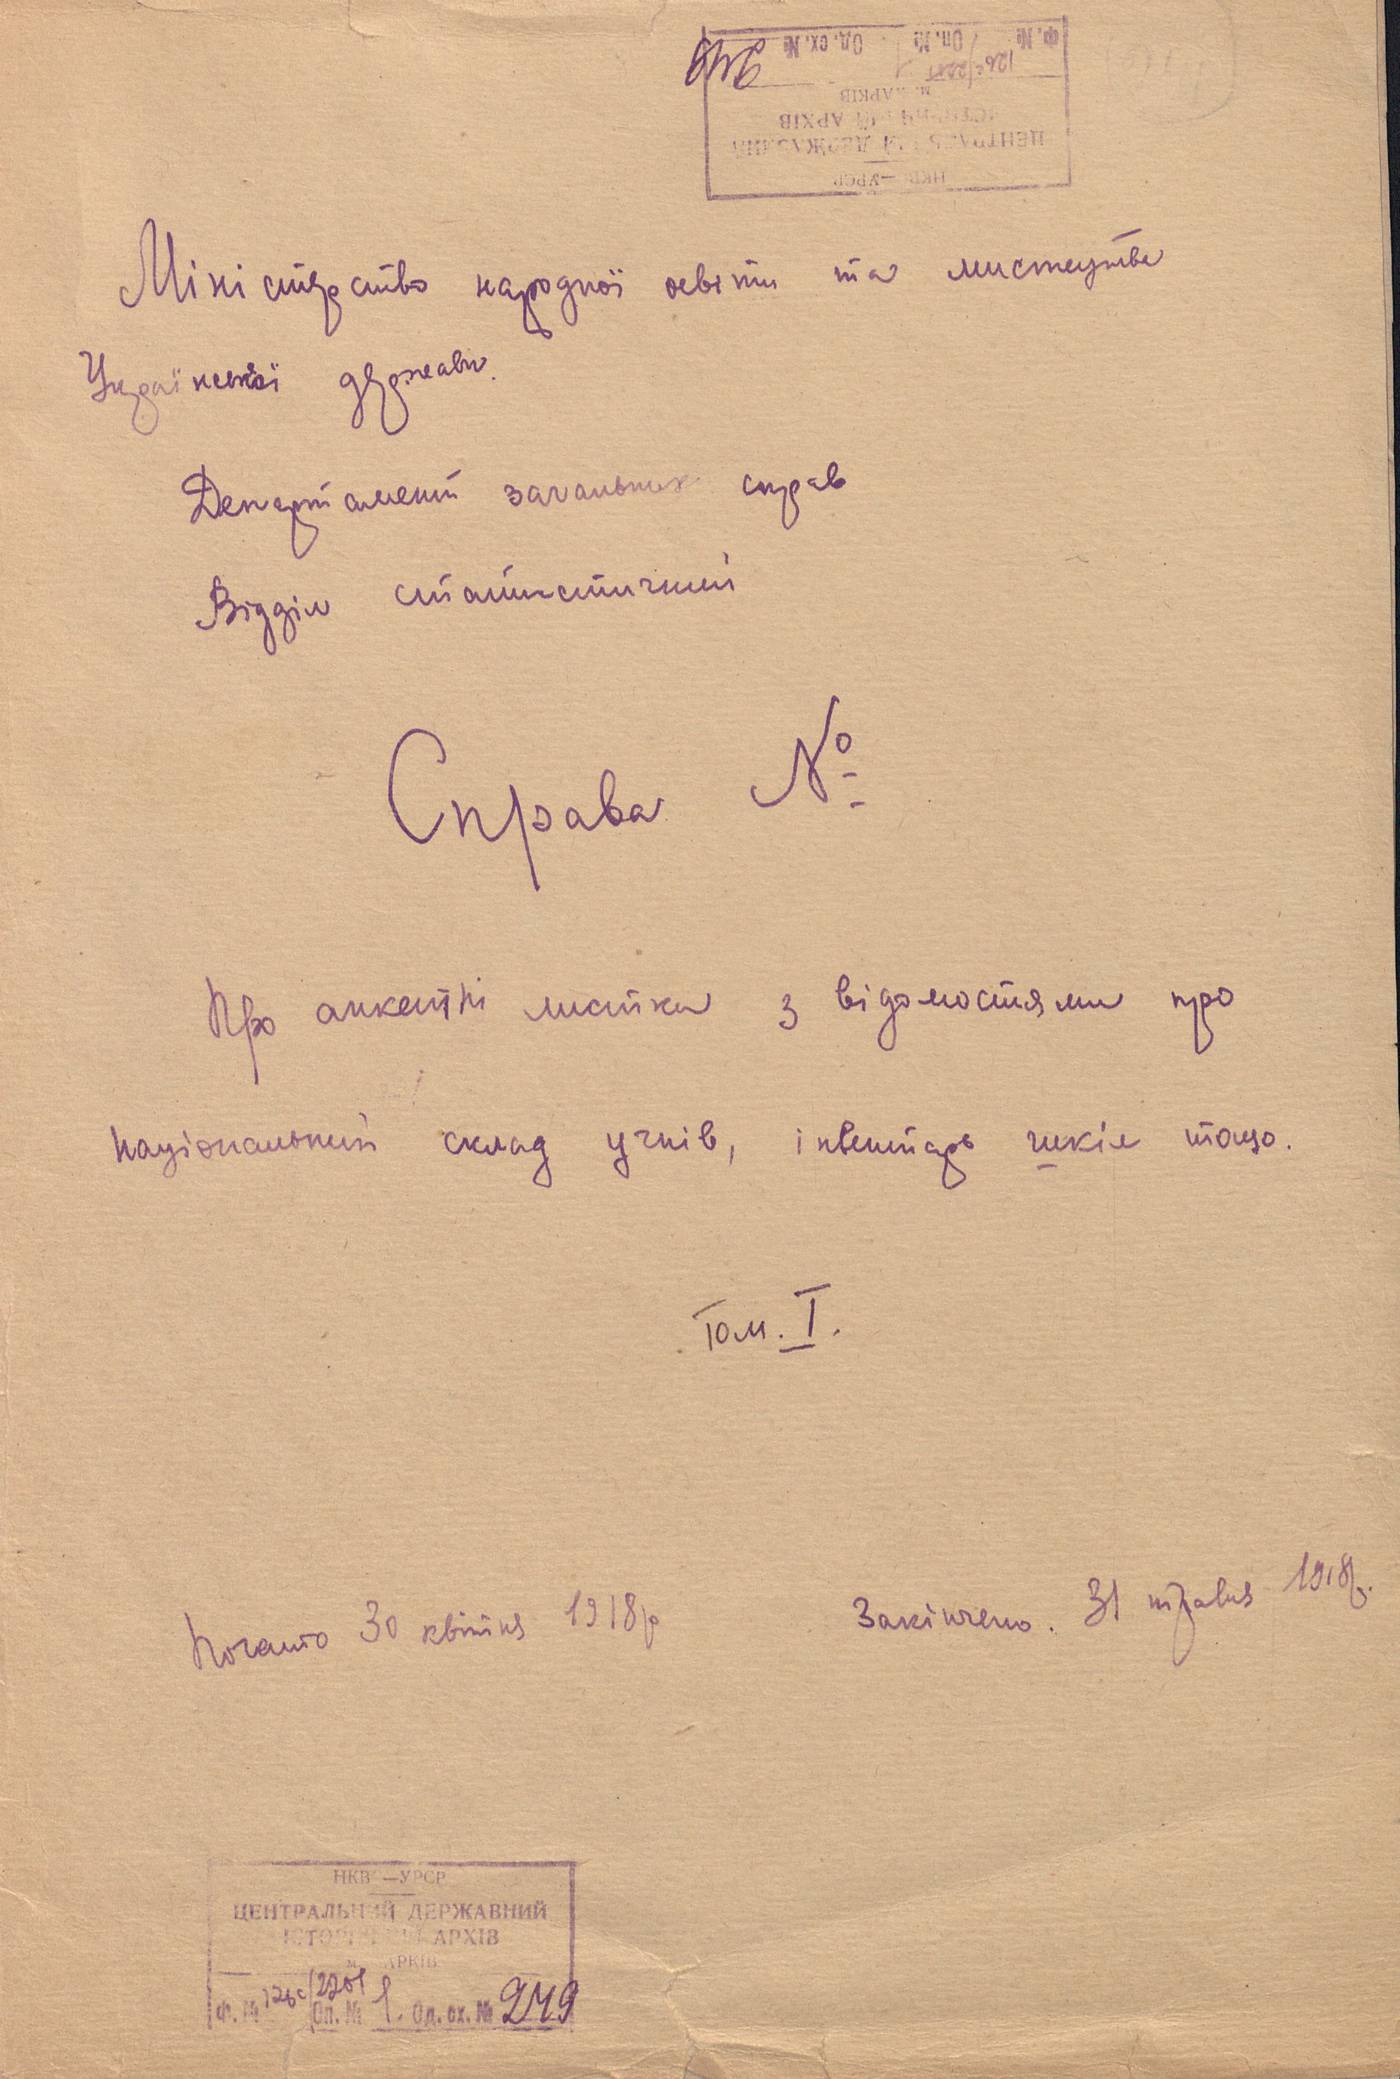 Ф. № 126с/2201 Оп. № 1 Од. сх. № 249
м. ХАРКІВ
ІСТОРИЧНИЙ АРХІВ
ЦЕНТРАЛЬНИЙ ДЕРЖАВНИЙ
НКВС—УРСР
Міністерство народної освіти та мистецтва
Української держави.
Департамент загальних справ
Відділ статистичний
Справа №
Про анкетні листки з відомостями про
національний склад учнів, інвентарь шкіл тощо.
Том. I.
Почато 30 квітня 1918р
Закінчено. 31 травня 1918р.
НКВС—УРСР
ЦЕНТРАЛЬНИЙ ДЕРЖАВНИЙ
ІСТОРИЧНИЙ АРХІВ
м. ХАРКІВ
Ф. № 126с/2201 Оп. № 1. Од. сх. № 249